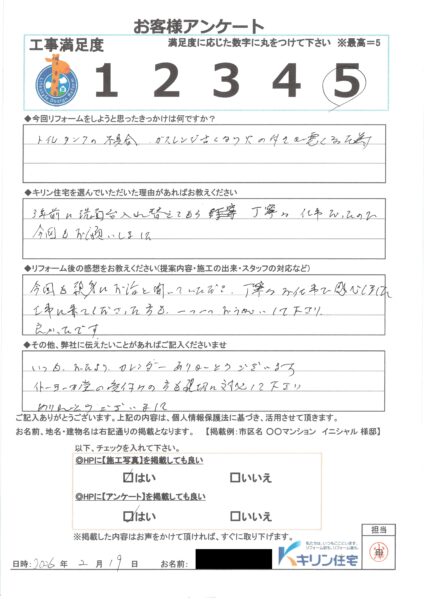 お客様アンケート
工事満足度
満足度に応じた数字に丸をつけて下さい ※最高＝5
1 2 3 4 5
◆今回リフォームをしようと思ったきっかけは何ですか？
トイレタンクの不具合 ガスレンジ古くなり火の
◆キリン住宅を選んでいただいた理由があればお教えください
3年前に洗面台入れ替えてもらい 丁寧な仕事だったので
今回もお願いしました
◆リフォーム後の感想をお教えください(提案内容・施工の出来・スタッフの対応など)
今回も親身にお話を聞いていただき 丁寧なお仕事で感心しました
工事に来てくださった方も 一つ一つ して下さり
良かったです
◆その他、弊社に伝えたいことがあればご記入くださいませ
いつも おたより カレンダー ありがとうございます
の受付の方も親切に対応して下さり
ありがとうございました
ご記入ありがとうございます。上記の内容は、個人情報保護法に基づき、活用させて頂きます。
お名前、地名・建物名は右記通りの掲載となります。 【掲載例：市区名 〇〇マンション イニシャル 様邸】
以下、チェックを入れて下さい。
◎HPに【施工写真】を掲載しても良い
☑はい □いいえ
◎HPに【アンケート】を掲載しても良い
☑はい □いいえ
※掲載した内容はお声をかけて頂ければ、すぐに取り下げます。
担当
日時: 2026 年 2 月 19 日 お名前:
キリン住宅